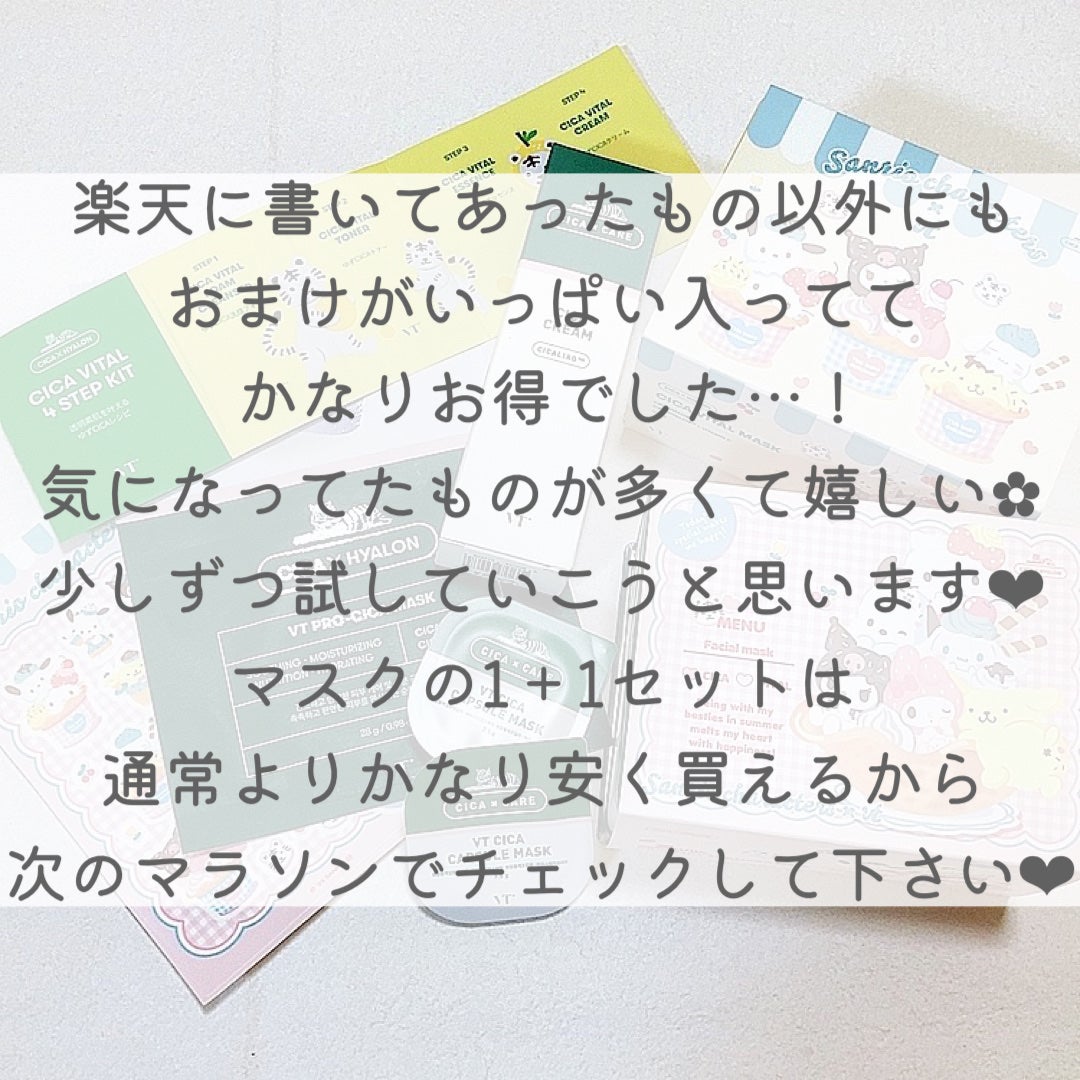 楽天に書いてあったもの以外にも
おまけがいっぱい入ってて
かなりお得でした…！
気になってたものが多くて嬉しい✿
少しずつ試していこうと思います❤
マスクの1+1セットは
通常よりかなり安く買えるから
次のマラソンでチェックして下さい❤
STEP 4
CICA VITAL
CREAM
STEP 3
CICA VITAL
ESSENCE
TONER
STEP 1
CICA VITAL
CICA × HYALON
CICA VITAL
4 STEP KIT
透明素肌を叶える
ゆずCICAレシピ
VT
CICA × CARE
CREAM
VT
CICA × HYALON
VT PRO-CICA MASK
CICA × CARE
CAPSULE MASK
CICA × CARE
VT CICA
CAPSULE MASK
VT
MENU
Facial mask
besties in summer
melts my heart
with happiness!